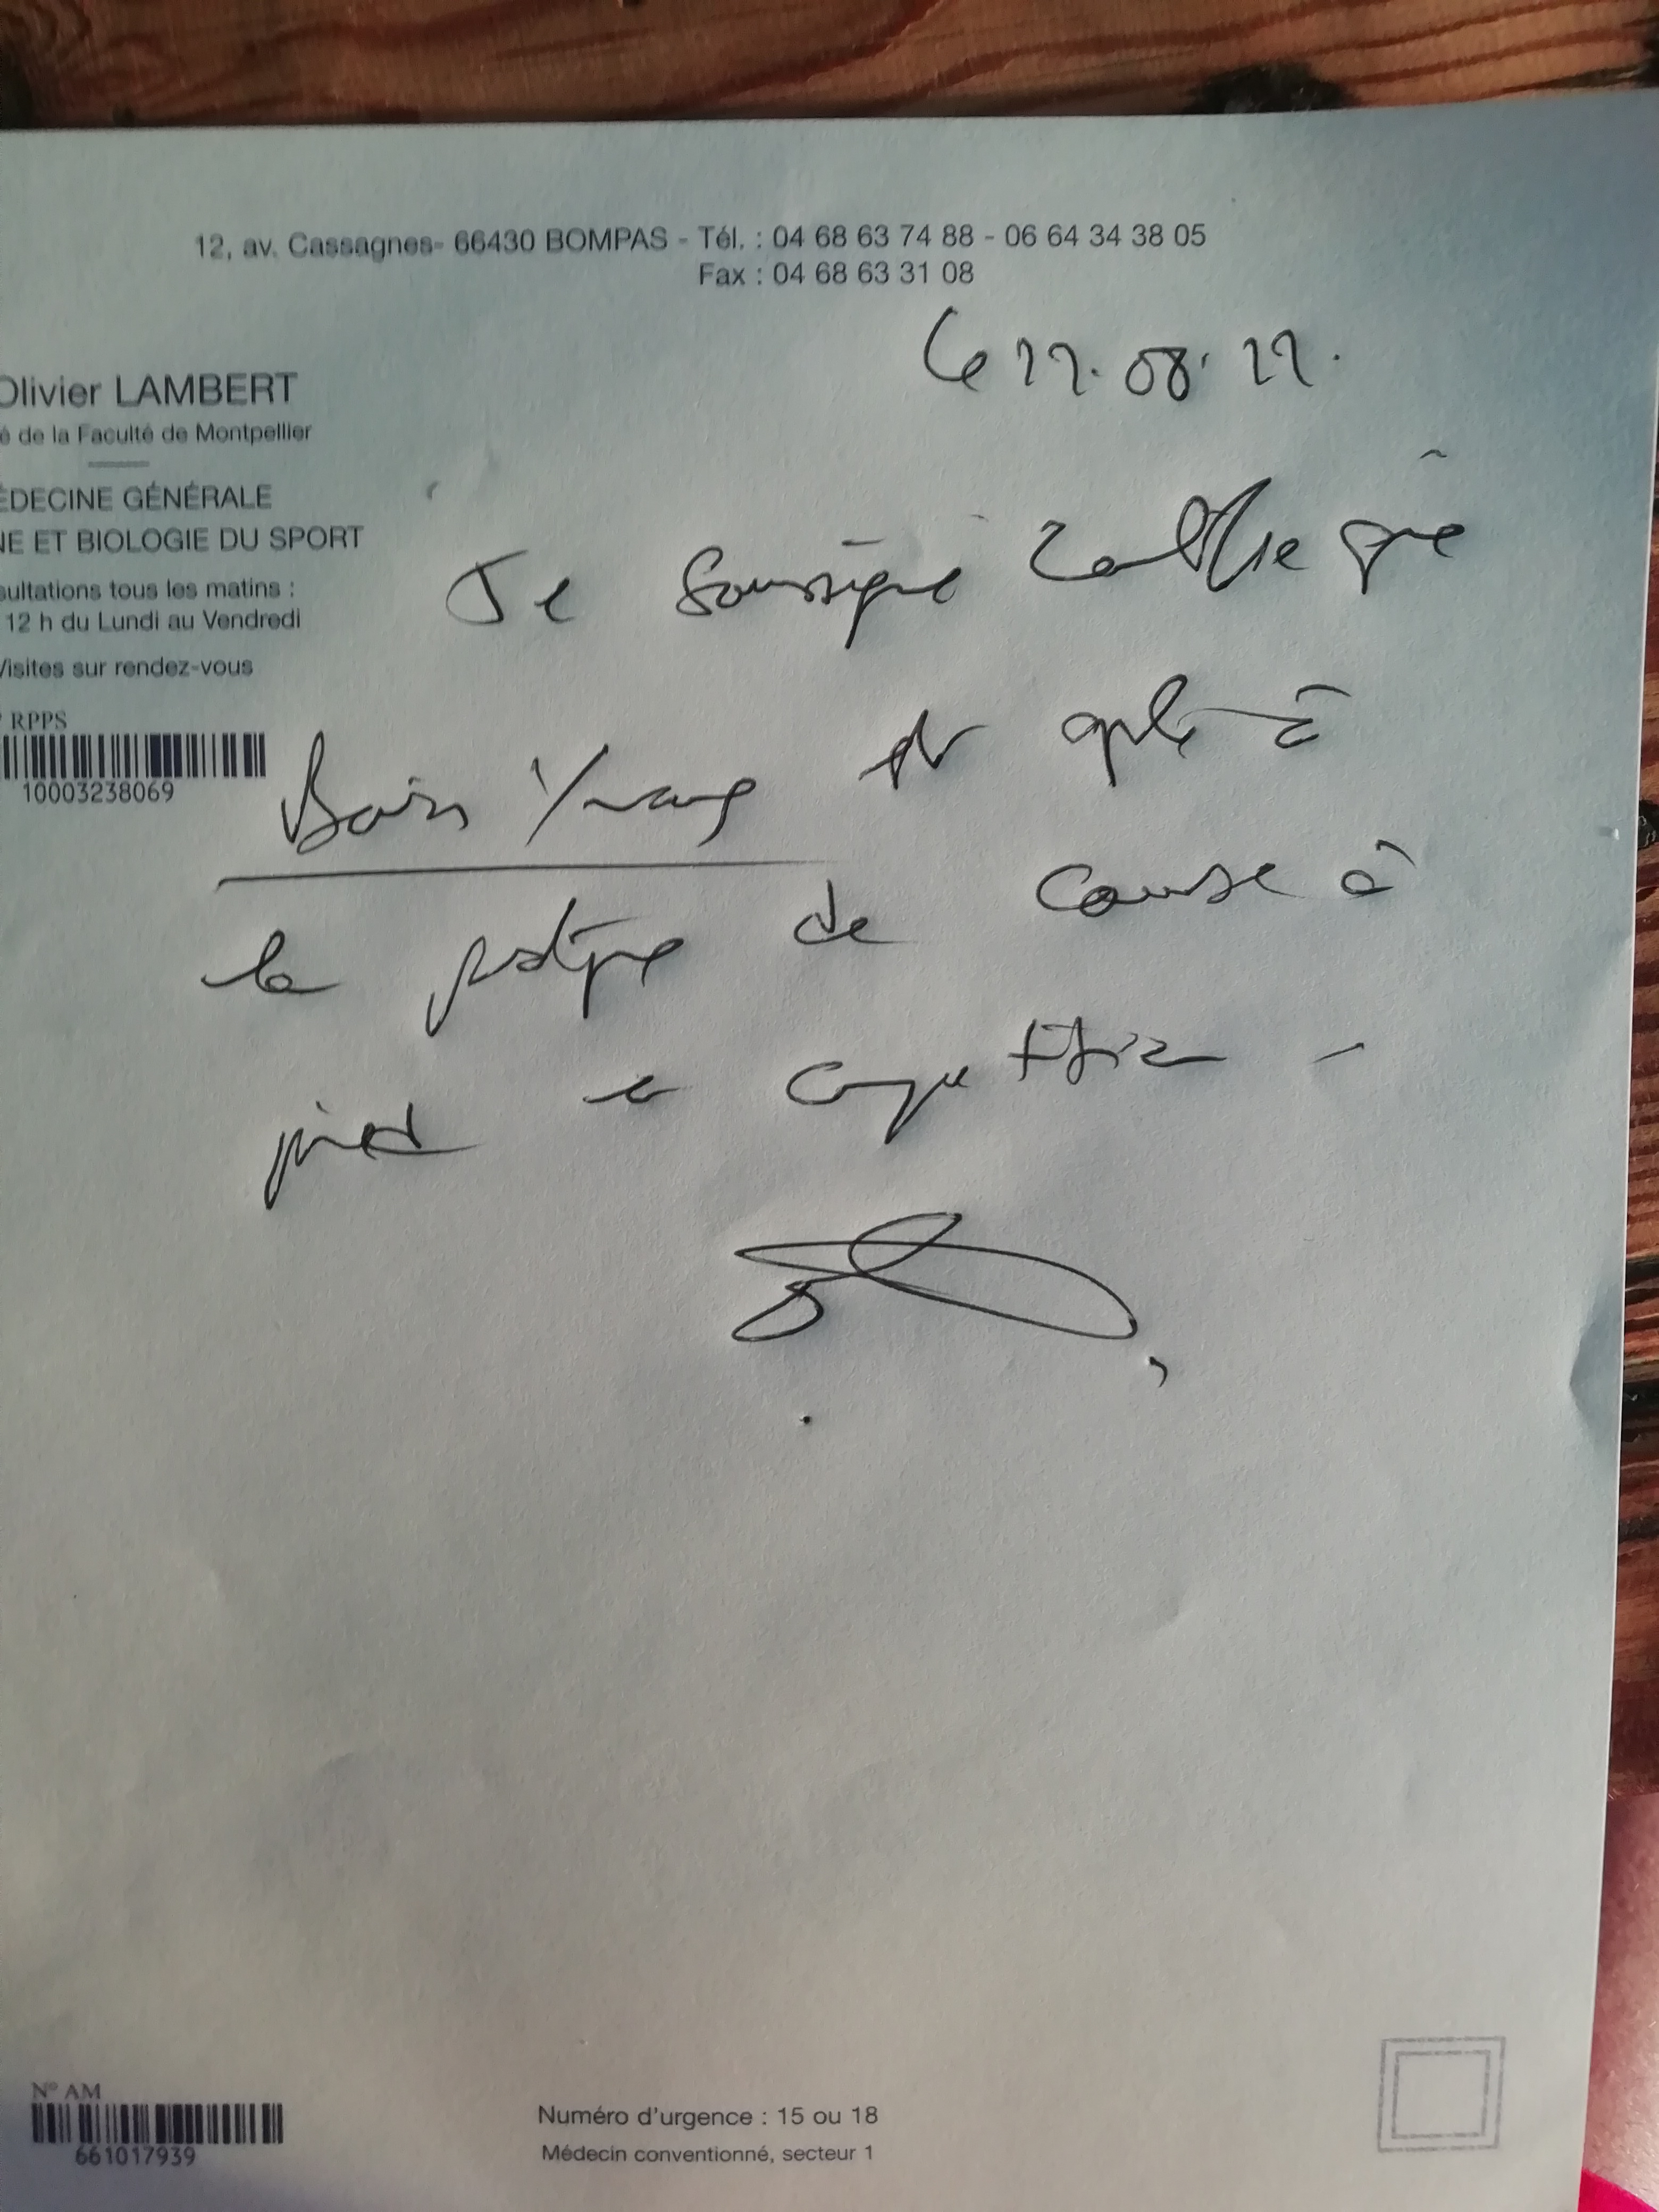 12, av. Cassagnes- 66430 BOMPAS - Tél. : 04 68 63 74 88 - 06 64 34 38 05
Fax : 04 68 63 31 08
Le 22.08.22.
Olivier LAMBERT
é de la Faculté de Montpellier
ÉDECINE GÉNÉRALE
NE ET BIOLOGIE DU SPORT
sultations tous les matins :
12 h du Lundi au Vendredi
Visites sur rendez-vous
RPPS
10003238069
Je soussigné certifie que
est apte à
la pratique de course à
pied en compétition -
N° AM
661017939
Numéro d'urgence : 15 ou 18
Médecin conventionné, secteur 1